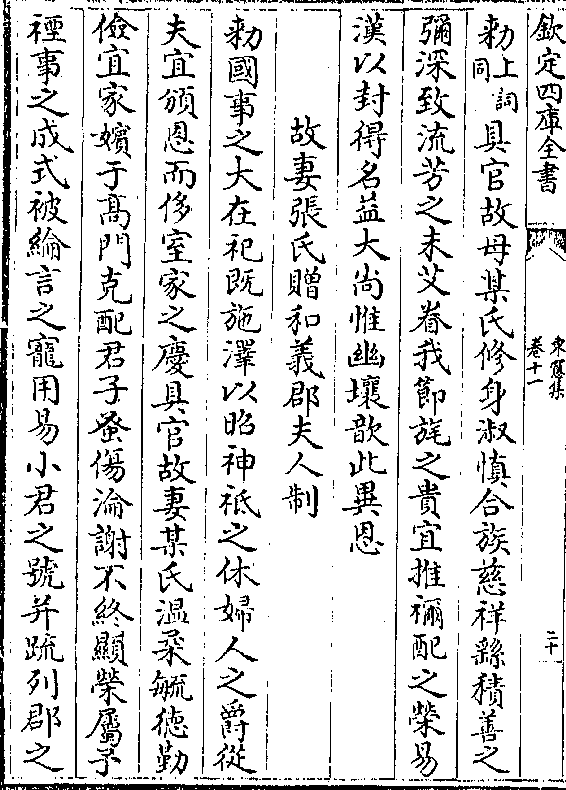 欽定四庫全書
東窻集
卷十一
二十
勅上詞同具官故母某氏修身淑慎合族慈祥繇積善之
彌深致流芳之未艾眷我節旄之貴宜推禰配之榮易
漢以封得名益大尚惟幽壤歆此異恩
故妻張氏贈和義郡夫人制
勅國事之大在祀既施澤以昭神祇之休婦人之爵從
夫宜頒恩而侈室家之慶具官故妻某氏温柔毓德勤
儉宜家嬪于髙門克配君子蚤傷淪謝不終顯榮屬予
禋事之成式被綸言之寵用易小君之號并疏列郡之